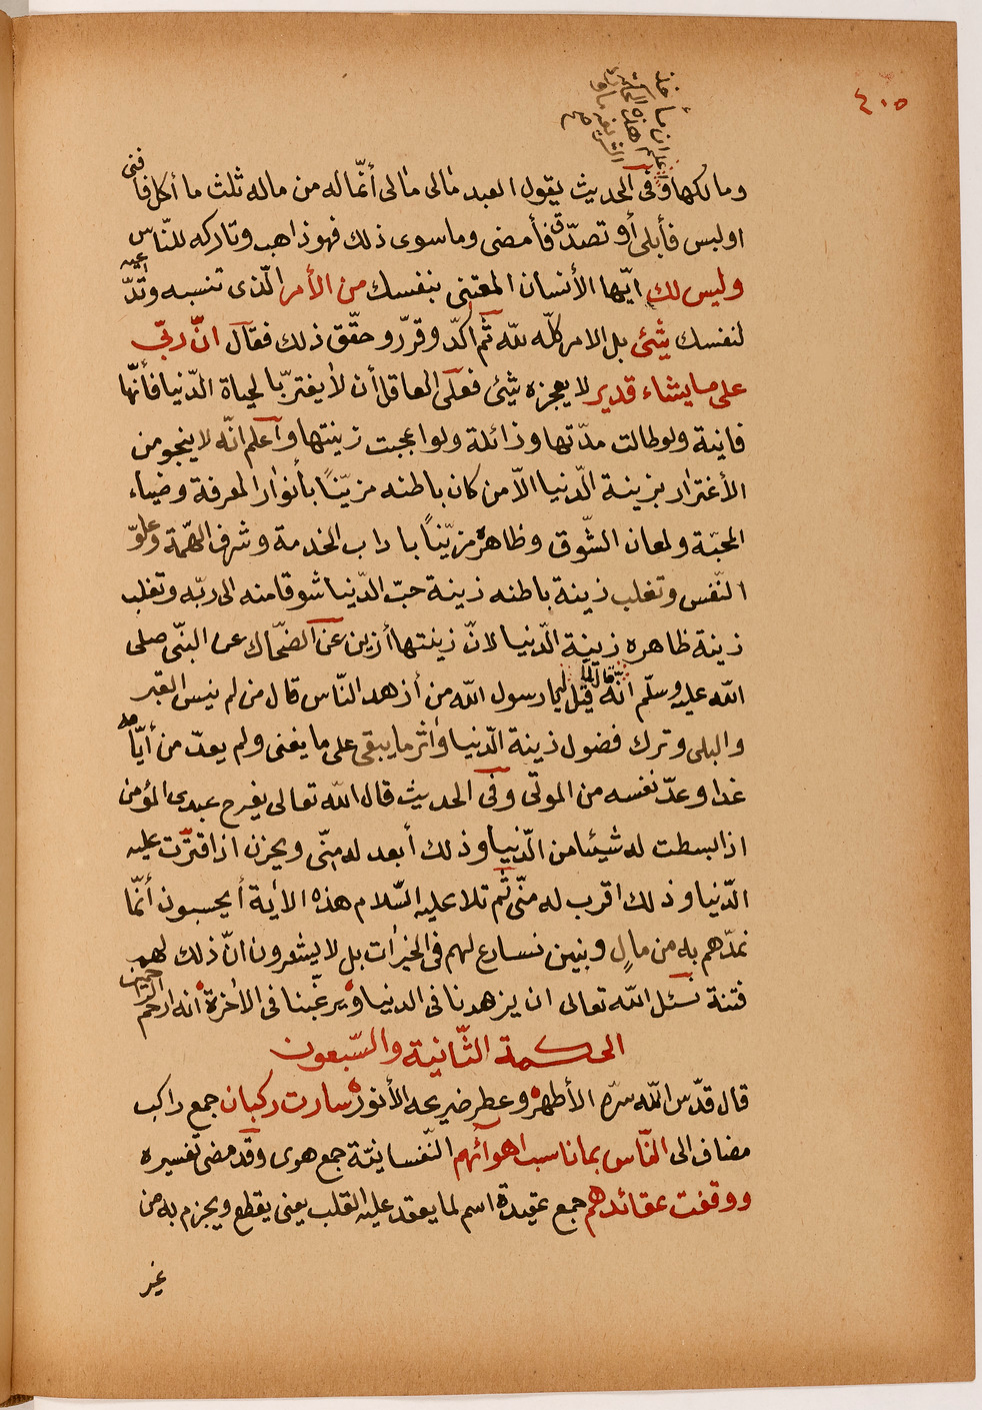 ٤٠٥
اعلم ان مأخذ
هذه الحكمة
الشريفة
وما لكها وفى الحديث يقول العبد مالى مالى أنّما له من ماله ثلث ما أكل فأفنى
او لبس فأبلى أو تصدّق فأمضى وما سوى ذلك فهو ذاهب وتاركه للنّاس
وليس لك ايّها الأنسان المعتنى بنفسك من الأمر الّذى تنسبه وتدّعيه
لنفسك شئ بل الامر كلّه للّه ثم اكدّ وقرّر وحقّق ذلك فقال انّ ربّى
على ما يشاء قدير لا يعجزه شئ فعلى العاقل أن لا يغتر بّا لحياة الدّنيا فأنّها
فانية ولو طالت مدّتها وزائلة ولو اعجبت زينتها وأعلم انّه لا ينجو من
الأغترار بزينة الّدنيا الاّ من كان باطنه مزيّنًا بأنوار المعرفة وضياء
المحبّة ولمعان الشّوق وظاهره مزيّناً باداب الخدمة وشرف الهمّة وعلوّ
النّفس وتغلب زينة باطنه زينة حبّ الدّنيا شوقا منه الى ربّه وتغلب
زينة ظاهره زينة الّدنيا لانّ زينتها أزين عن الضحّاك عن النبّى صلى
اللّه عليه وسلّم انه قيل يا رسول اللّه من أزهد النّاس قال من لم ينس القبر
والبلى وترك فضول زينة الّدنيا وأثر ما يبقى على ما يفنى ولم يعدّ من أيّامه
غدا وعدّ نفسه من الموتى وفى الحديث قال اللّه تعالى يفرح عبدى المؤمن
اذا بسطت له شيئا من الّدنيا وذلك أبعد له منّى ويحزن اذا قترّت عليه
الدّنيا وذلك اقرب له منّى ثم تلا عليه السّلام هذه الأية أيحسبون أنّما
نمدّهم به من مالٍ وبنين نسارع لهم فى الخيرات بل لا يشعرون انّ ذلك لهم
فتنة نسئل اللّه تعالى ان يزهدنا فى الدنيا ويرغّبنا فى الأخرة أنه ارحم الرحمين
الحكمة الثّانية والسّبعون
قال قدّس اللّه سرّه الأطهر وعطر ضريحه الأنور سارت ركبان جمع راكب
مضاف الى النّاس بما ناسب اهوآئهم النّفسانيّة جمع هوى وقد مضى تفسيره
ووقفت عقائدهم جمع عقيدة اسم لما يعقد عليه القلب يعنى يقطع ويجزم به من
غير